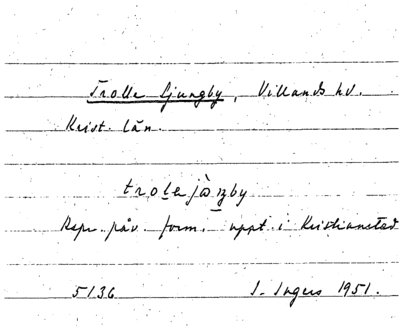 Trolle Ljungby, Villands hd.
Krist. län.
trolejàŋby
Rspr. påv. form. uppt. i Kristianstad
5136 I. Ingers 1951.